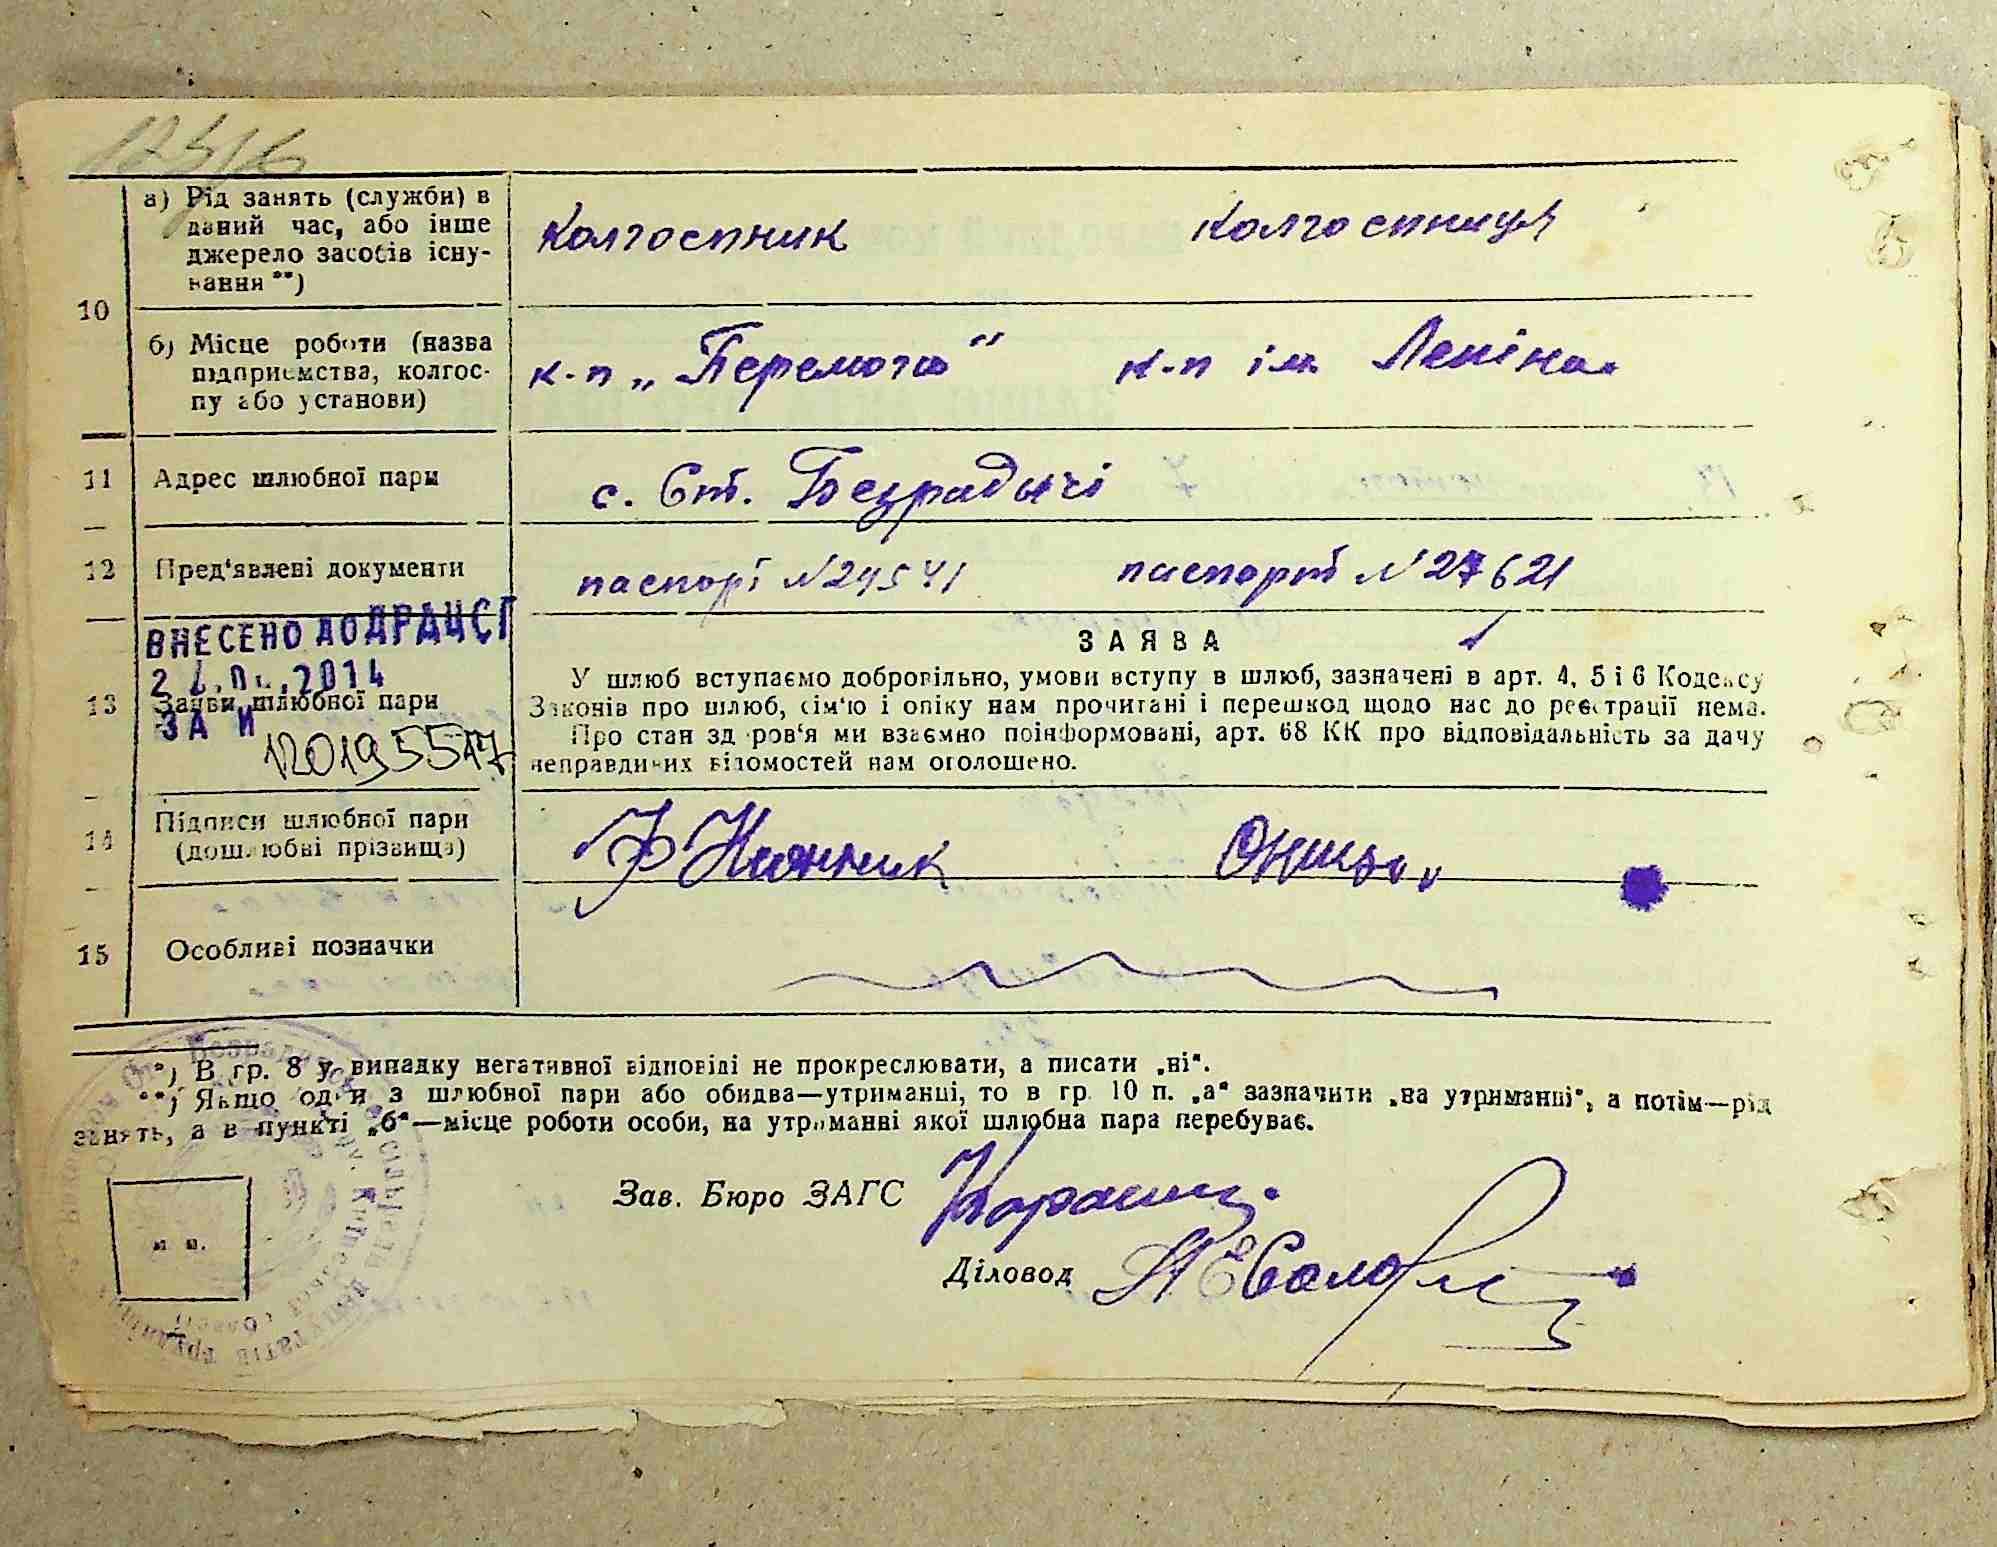 а) Рід занять (служби) в
даний час, або інше
джерело засобів існу-
вання **)
Колгоспник
Колгоспниця
10
б) Місце роботи (назва
підприємства, колгос-
пу або установи)
к-п „Перемога"
к-п ім. Леніна
11
Адрес шлюбної пари
с. Ст. Безрадичі
12
Пред'явлені документи
паспорт №24541
паспорт №27621
ВНЕСЕНО ДО ДРАЦСГ
2014
13
Заяви шлюбної пари
ЗА
12019551
ЗАЯВА
У шлюб вступаємо добровільно, умови вступу в шлюб, зазначені в арт. 4, 5 і 6 Кодексу
Законів про шлюб, сім'ю і опіку нам прочитані і перешкод щодо нас до реєстрації нема.
Про стан здоров'я ми взаємно поінформовані, арт. 68 КК про відповідальність за дачу
неправдивих відомостей нам оголошено.
14
Підписи шлюбної пари
(дошлюбні прізвища)
15
Особливі позначки
*) В гр. 8 у випадку негативної відповіді не прокреслювати, а писати „ні".
**) Якщо один з шлюбної пари або обидва—утриманці, то в гр. 10 п. „а" зазначити „на утриманні", а потім—рід
занять, а в пункті „б"—місце роботи особи, на утриманні якої шлюбна пара перебуває.
Зав. Бюро ЗАГС
Діловод
м. п.